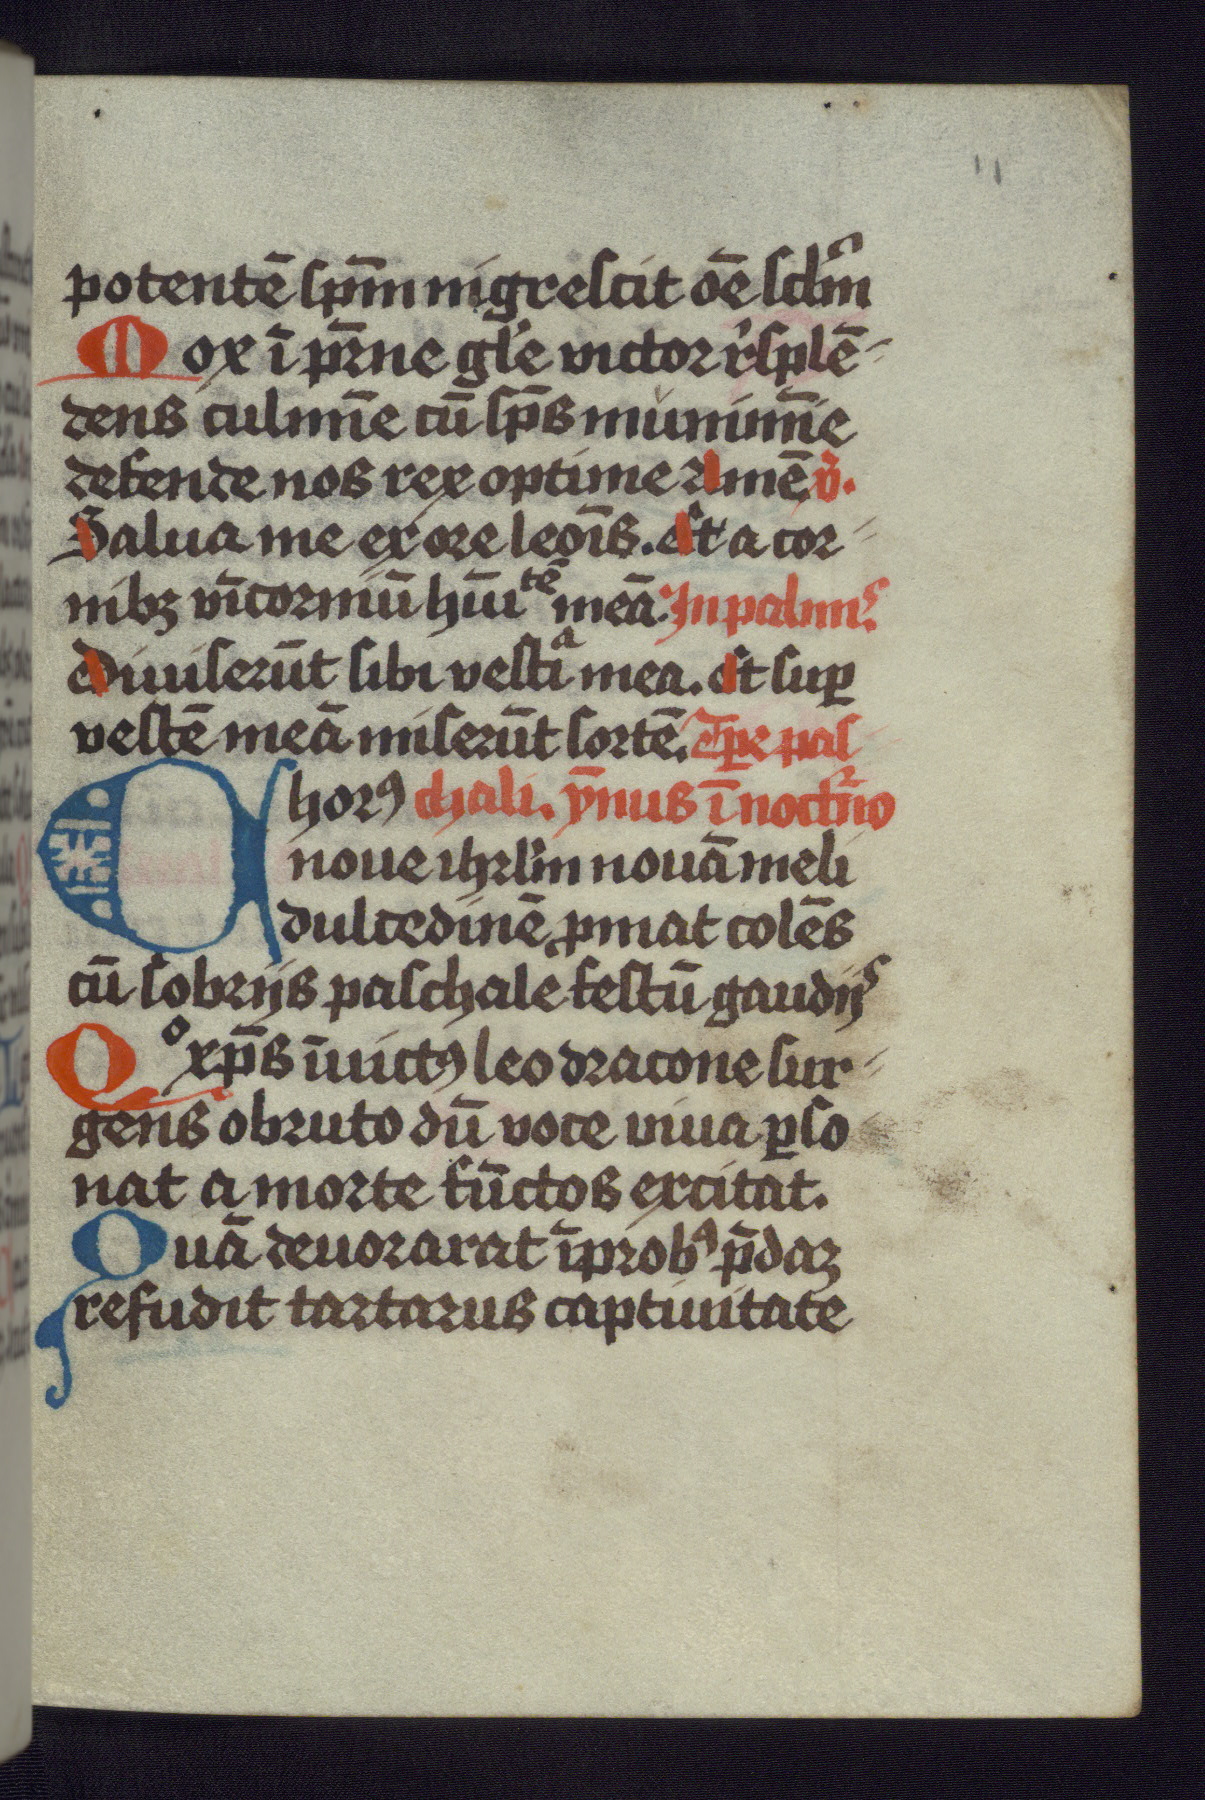 11
potentē spm̄ nigrescit oē sclm̄
Mox ī pr̄ne gl'e victor r'splē-
dens culmīe cū sp̄s munimīe
defende nos rex optime Amē. v̄.
Salua me ex ore leoīs. Et a cor-
nibꝫ vnicorniū hūi^tē meā. In palmis
Diuiserūt sibi vesti^a mea. Et suꝑ
vestē meā miserūt sortē. Tꝑe pas-
Chorꝰ chali. ymnus ī noct'no
noue ihrl'm nouā meli
dulcedinē ꝓmat colēs
cū sobrijs paschale festū gaudijs
Qͦ xp̄s īuictꝰ leo dracone sur-
gens obruto dū voce viua ꝑso
nat a morte fūctos excitat.
Quā deuorarat īprobꝰ p̄daꝫ
refudit tartarus captiuitate